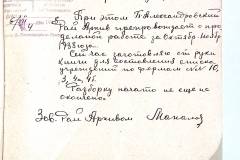 При этом П-Александровский
Рай Архив препровождает о про
деланой работе за Октябрь Ноябрь
1938 году.
Сей час заготовляю от руки
книги для составления списка
учреждений по формам №№ 10,
3, 4
Разборку начато не еще не
окончено.
Зав. Рай Архивом